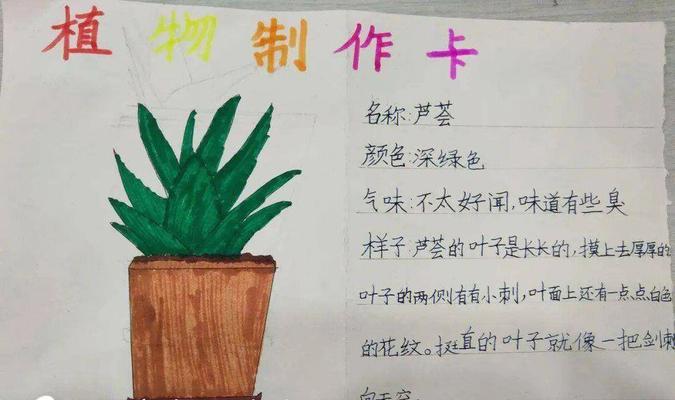 植物制作卡
名称:芦荟
颜色:深绿色
气味:不太好闻,味道有些臭
样子:芦荟的叶子是长长的,摸上去厚厚的
叶子的两侧有有小刺,叶面上还有一点点白色
的花纹。挺直的叶子就像一把剑刺
向天空